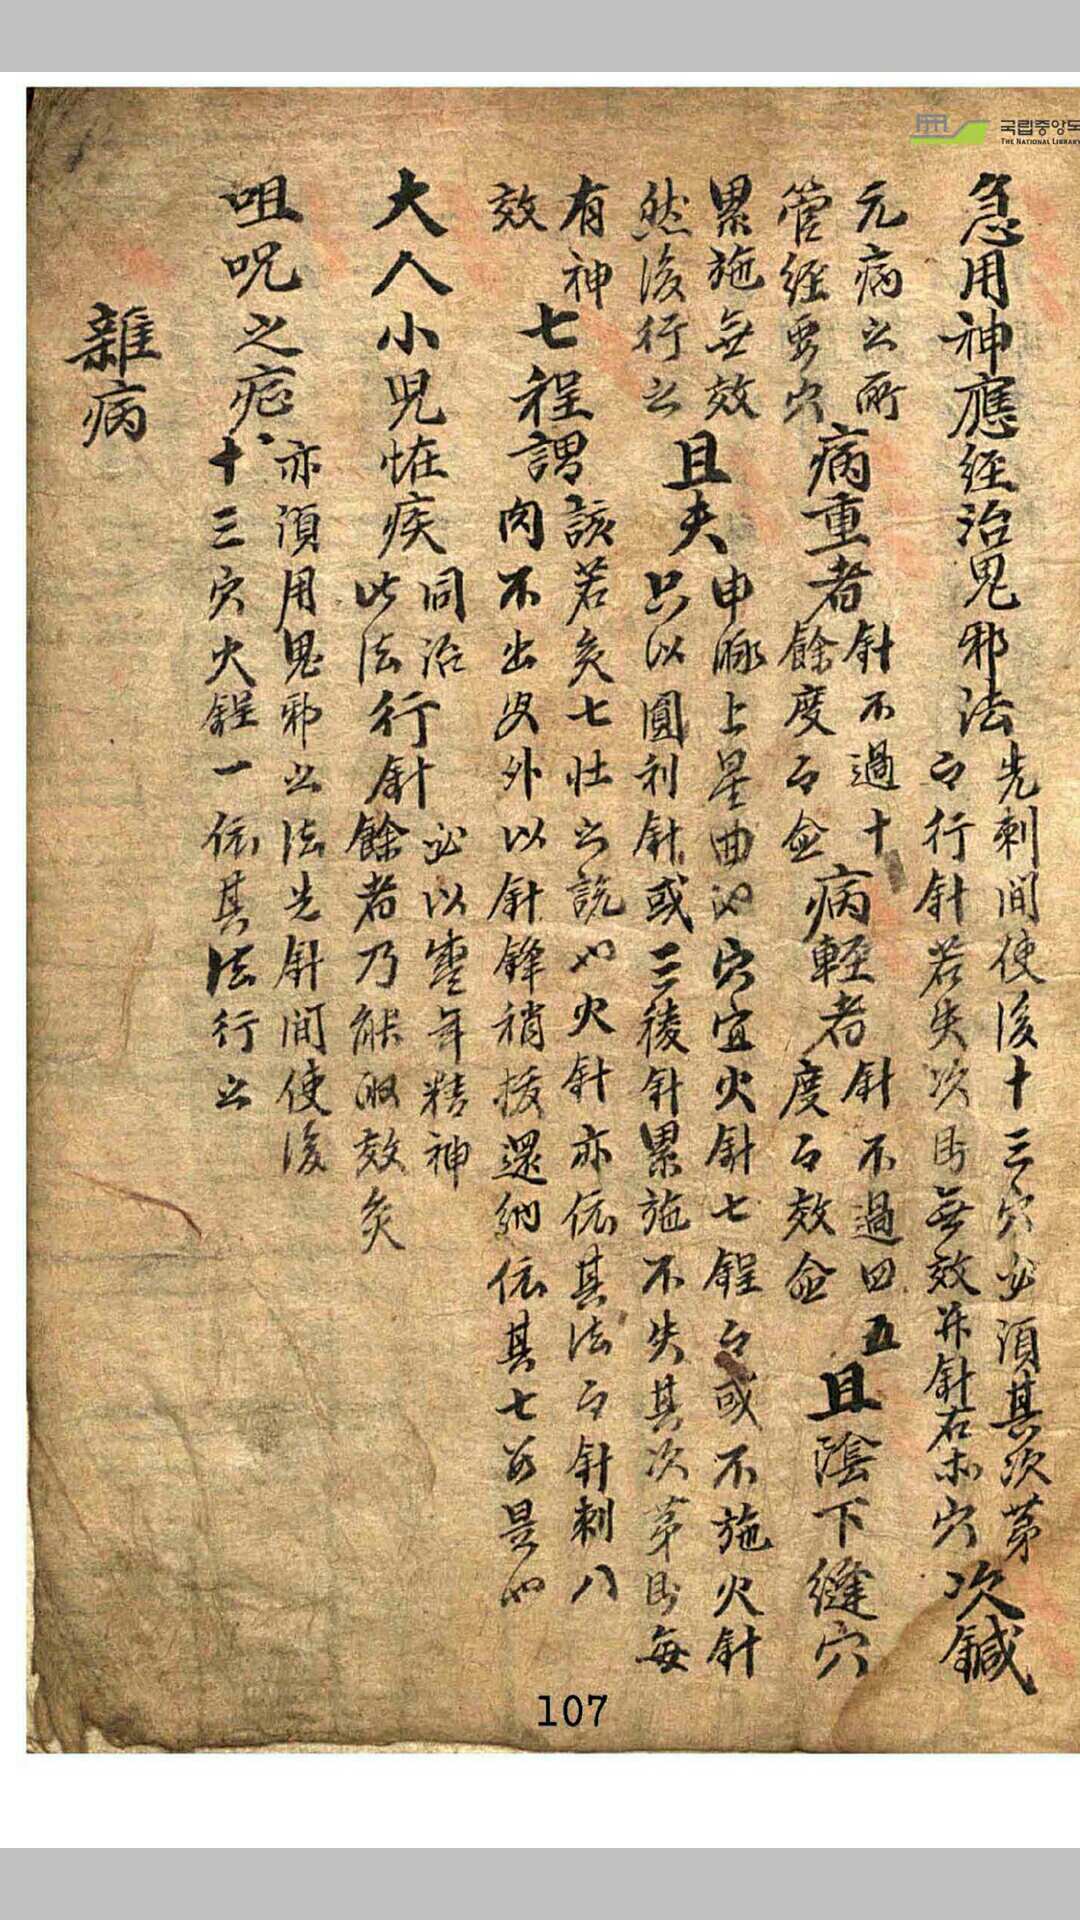 국립중앙도
THE NATIONAL LIBRARY
急用神應經治鬼邪法
先刺間使後十三穴必須其次第
行針若失次則無效并針右穴
次鍼
元病之所
管經要穴
病重者
針不過十
餘度而
病輕者
針不過四五
度而效
且陰下縫穴
累施無效
然後行之
且夫
申脉上星曲池穴宜火針七鋥而或不施火針
只以圓利針或三稜針累施不失其次第則每
有神
效
七程謂
該若灸七壯之說如火針亦依其法而針刺入
肉不出皮外以針鋒稍拔還納依其七是
大人小兒恠疾
同治
此法
行針
必以壅年精神
餘者乃能取效灸
咀呪之
亦須用鬼邪之法先針間使後
十三穴火鋥一依其法行之
雜病
107